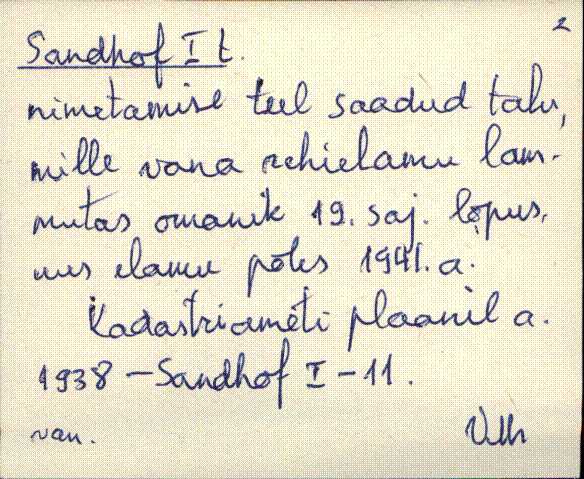 2
Sandhof I t.
nimetamise teel saadud talu,
mille vana rehielamu lam-
mutas omanik 19. saj. lõpus,
uus elamu põles 1941. a.
Kadastriameti plaanil a.
1938 – Sandhof I – 11.
van.